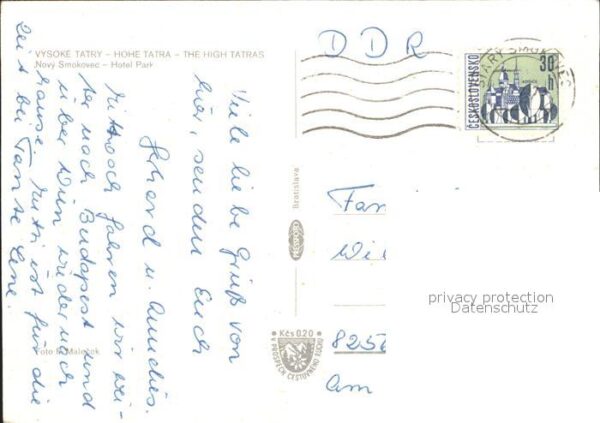 VYSOKÉ TATRY – HOHE TATRA – THE HIGH TATRAS
Nový Smokovec – Hotel Park
Viele liebe Grüße von
hier, senden Euch
Gerhard u. Annelies.
Mittwoch fahren wir wei-
ter nach Budapest und
über Wien wieder nach
Hause. Mutti ist für die
Zeit bei Tante Lene.
Foto
Bratislava
PRESSFOTO
Kčs 0.20
V PROSPECH CESTOVNÉHO RUCHU
DDR
STARÝ SMOKOVEC
ČESKOSLOVENSKO
30 h
Fam
825
Am
privacy protection
Datenschutz